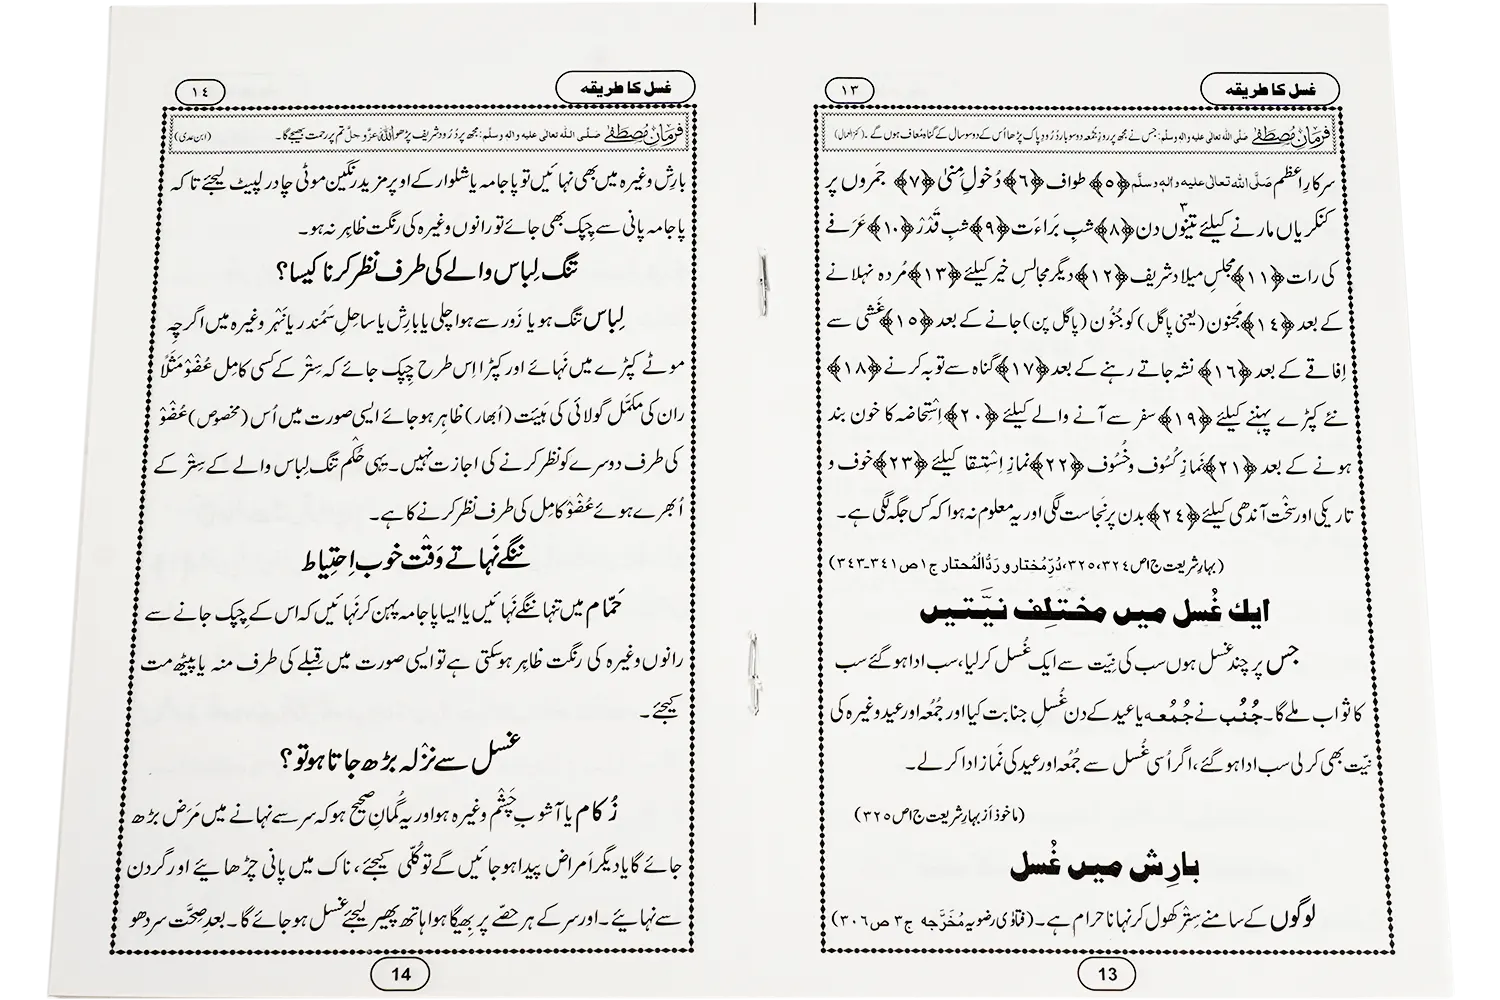 غسل کا طریقہ
۱۳
فرمانِ مصطفٰے صلَّی اللہ تعالٰی علیہ والہٖ وسلّم: جس نے مجھ پر روزِ جُمعہ دو سو بار دُرُود پاک پڑھا اُس کے دو سو سال کے گناہ معاف ہوں گے۔ (کنزالعمال)
سرکارِ اعظم صَلَّی اللہ تعالٰی علیہ والہٖ وسلَّم ﴿۵﴾ طواف ﴿۶﴾ دُخُولِ مِنیٰ ﴿۷﴾ جَمروں پر
کنکریاں مارنے کیلئے تینوں ۳ دن ﴿۸﴾ شبِ بَرَاءَت ﴿۹﴾ شبِ قَدْر ﴿۱۰﴾ عَرَفے
کی رات ﴿۱۱﴾ مجلسِ میلاد شریف ﴿۱۲﴾ دیگر مجالسِ خیر کیلئے ﴿۱۳﴾ مُردہ نہلانے
کے بعد ﴿۱۴﴾ مجنون (یعنی پاگل) کو جُنُون (پاگل پن) جانے کے بعد ﴿۱۵﴾ غَشی سے
اِفاقے کے بعد ﴿۱۶﴾ نشہ جاتے رہنے کے بعد ﴿۱۷﴾ گناہ سے توبہ کرنے ﴿۱۸﴾
نئے کپڑے پہننے کیلئے ﴿۱۹﴾ سفر سے آنے والے کیلئے ﴿۲۰﴾ اِستِحاضہ کا خون بند
ہونے کے بعد ﴿۲۱﴾ نَمازِ کُسُوف و خُسُوف ﴿۲۲﴾ نمازِ اِستِسقا کیلئے ﴿۲۳﴾ خوف و
تاریکی اور سخت آندھی کیلئے ﴿۲۴﴾ بدن پر نَجاست لگی اور یہ معلوم نہ ہوا کہ کس جگہ لگی ہے۔
(بہارِ شریعت ج۱ص۳۲۴،۳۲۵، دُرِّمُختار و رَدُّالْمُحتار ج۱ ص۳۴۱۔۳۴۳)
ایک غُسل میں مختلِف نیَّتیں
جس پر چند غسل ہوں سب کی نیّت سے ایک غُسل کر لیا، سب ادا ہو گئے سب
کا ثواب ملے گا۔ جُنُب نے جُمُعہ یا عید کے دن غُسلِ جنابت کیا اور جُمُعہ اور عید وغیرہ کی
نیّت بھی کر لی سب ادا ہو گئے، اگر اُسی غُسل سے جُمُعہ اور عید کی نَماز ادا کر لے۔
(ماخوذ اَز بہارِ شریعت ج۱ص۳۲۵)
بارِش میں غُسل
لوگوں کے سامنے سِتْر کھول کر نہانا حرام ہے۔ (فتاوٰی رضویہ مُخَرَّجہ ج۳ ص۳۰۶)
13
غسل کا طریقہ
۱٤
فرمانِ مصطفٰے صلَّی اللہ تعالٰی علیہ والہٖ وسلّم: مجھ پر دُرُود شریف پڑھو اللہ عزّوجلّ تم پر رحمت بھیجے گا۔ (ابن عدی)
بارِش وغیرہ میں بھی نہائیں تو پاجامہ یا شلوار کے اوپر مزید رنگین موٹی چادر لپیٹ لیجئے تا کہ
پاجامہ پانی سے چِپک بھی جائے تو رانوں وغیرہ کی رنگت ظاہِر نہ ہو۔
تنگ لِباس والے کی طرف نظر کرنا کیسا؟
لِباس تنگ ہو یا زَور سے ہوا چلی یا بارِش یا ساحِلِ سَمُندر یا نَہْر وغیرہ میں اگرچِہ
موٹے کپڑے میں نَہائے اور کپڑا اِس طرح چِپک جائے کہ سِتْر کے کسی کامِل عُضْوْ مَثَلاً
ران کی مکمَّل گولائی کی ہَیئت (اُبھار) ظاہِر ہو جائے ایسی صورت میں اُس (مخصوص) عُضْوْ
کی طرف دوسرے کو نظر کرنے کی اجازت نہیں۔ یہی حُکْم تنگ لِباس والے کے سِتْر کے
اُبھرے ہوئے عُضْوْ کامِل کی طرف نظر کرنے کا ہے۔
ننگے نَہاتے وَقْت خوب اِحتِیاط
حَمّام میں تنہا ننگے نَہائیں یا ایسا پاجامہ پہن کر نَہائیں کہ اس کے چِپک جانے سے
رانوں وغیرہ کی رنگت ظاہِر ہو سکتی ہے تو ایسی صورت میں قِبلے کی طرف منہ یا پیٹھ مت
کیجئے۔
غسل سے نَزْلہ بڑھ جاتا ہو تو؟
زُکام یا آشوبِ چَشْم وغیرہ ہو اور یہ گُمانِ صحیح ہو کہ سر سے نہانے میں مَرَض بڑھ
جائے گا یا دیگر اَمراض پیدا ہو جائیں گے تو کُلّی کیجئے، ناک میں پانی چڑھائیے اور گردن
سے نہائیے۔ اور سر کے ہر حصّے پر بھیگا ہوا ہاتھ پھیر لیجئے غسل ہو جائے گا۔ بعدِ صِحَّت سر دھو
14